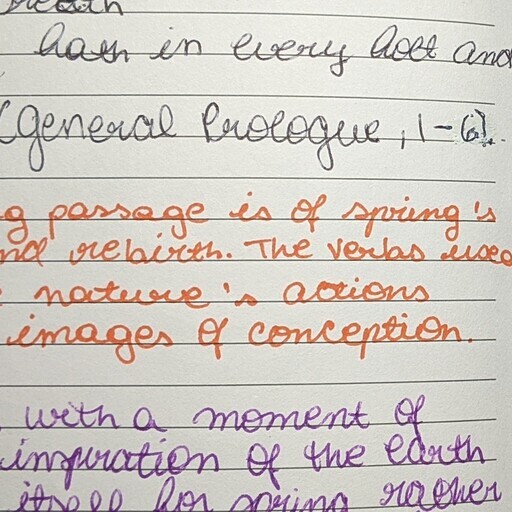 hath in every holt and
(General Prologue, 1-6).
g passage is of spring's
nd rebirth. The verbs used
nature's actions
images of conception.
with a moment of
inspiration of the earth
itself for spring rather